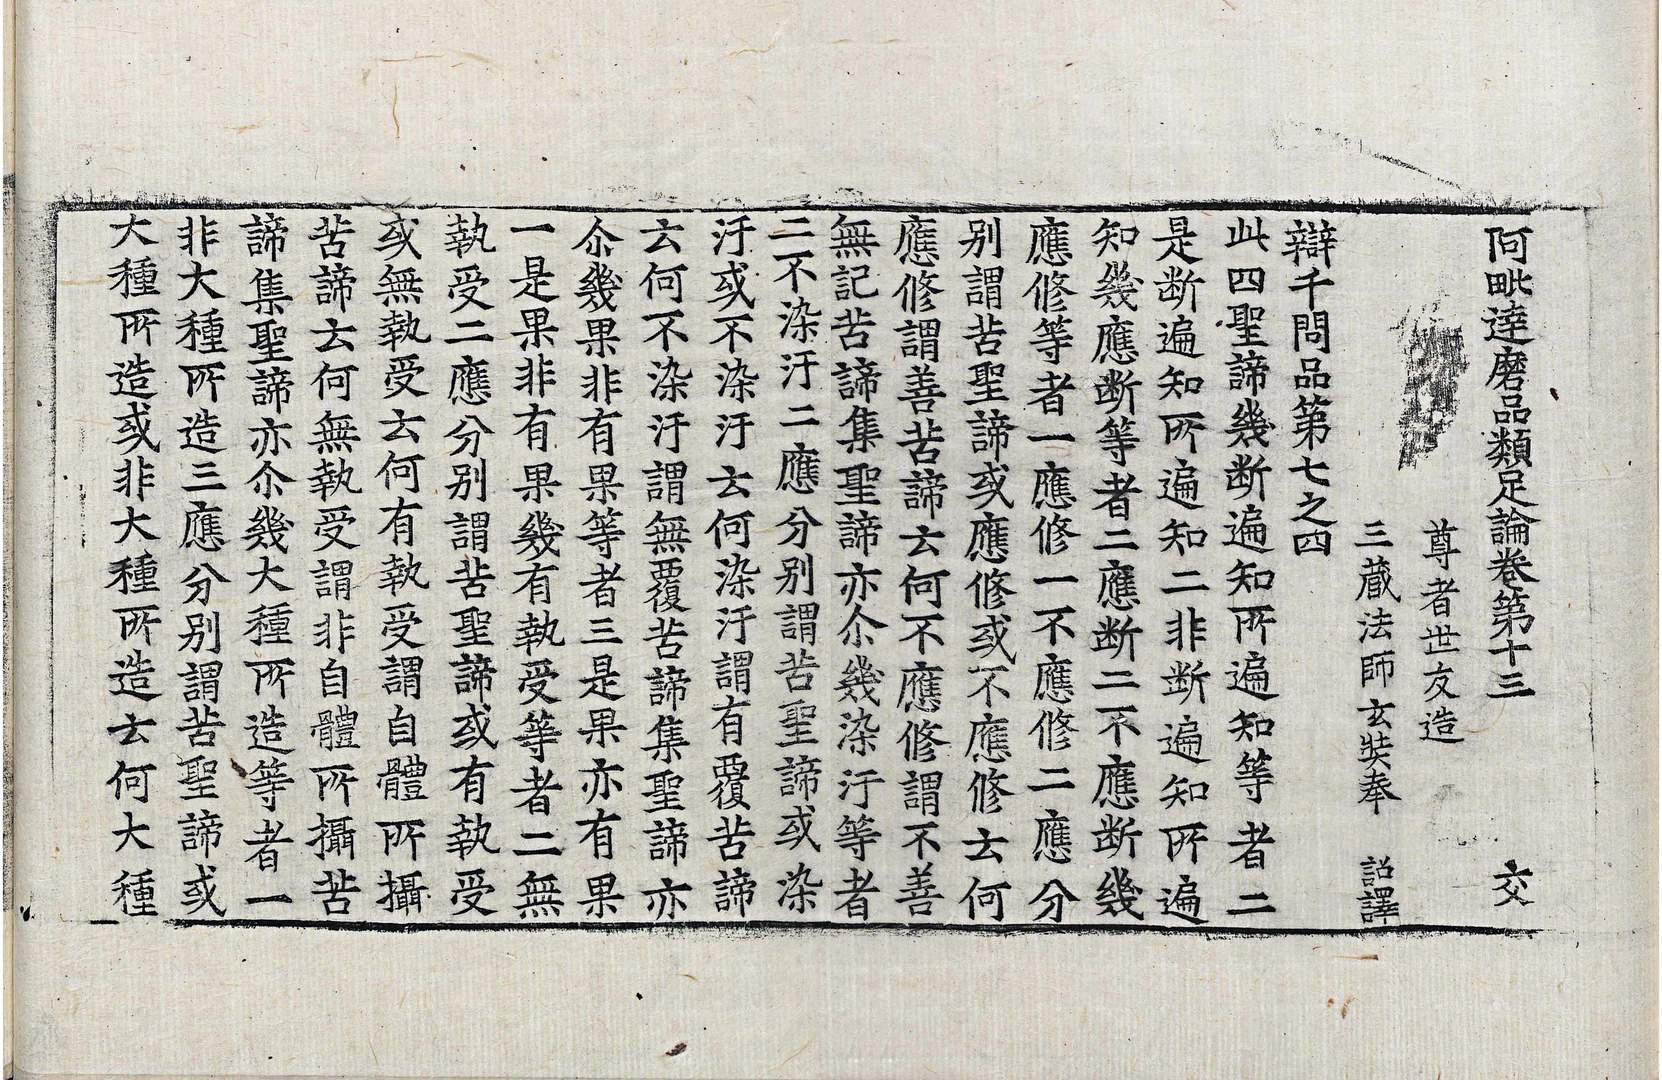 阿毗達磨品類足論卷第十三　交
尊者世友造
三藏法師玄奘奉　詔譯
辯千問品第七之四
此四聖諦幾斷遍知所遍知等者二
是断遍知所遍知二非断遍知所遍
知幾應断等者二應断二不應断幾
應修等者一應修一不應修二應分
別謂苦聖諦或應修或不應修云何
應修謂善苦諦云何不應修謂不善
無記苦諦集聖諦亦尒幾染汙等者
二不染汙二應分別謂苦聖諦或染
汙或不染汙云何染汙謂有覆苦諦
云何不染汙謂無覆苦諦集聖諦亦
尒幾果非有果等者三是果亦有果
一是果非有果幾有執受等者二無
執受二應分別謂苦聖諦或有執受
或無執受云何有執受謂自體所攝
苦諦云何無執受謂非自體所攝苦
諦集聖諦亦尒幾大種所造等者一
非大種所造三應分別謂苦聖諦或
大種所造或非大種所造云何大種